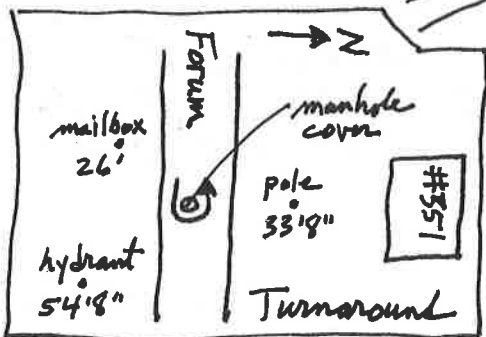 Forum
N
mailbox
26'
manhole
cover
pole
33'8"
#351
hydrant
54'8"
Turnaround